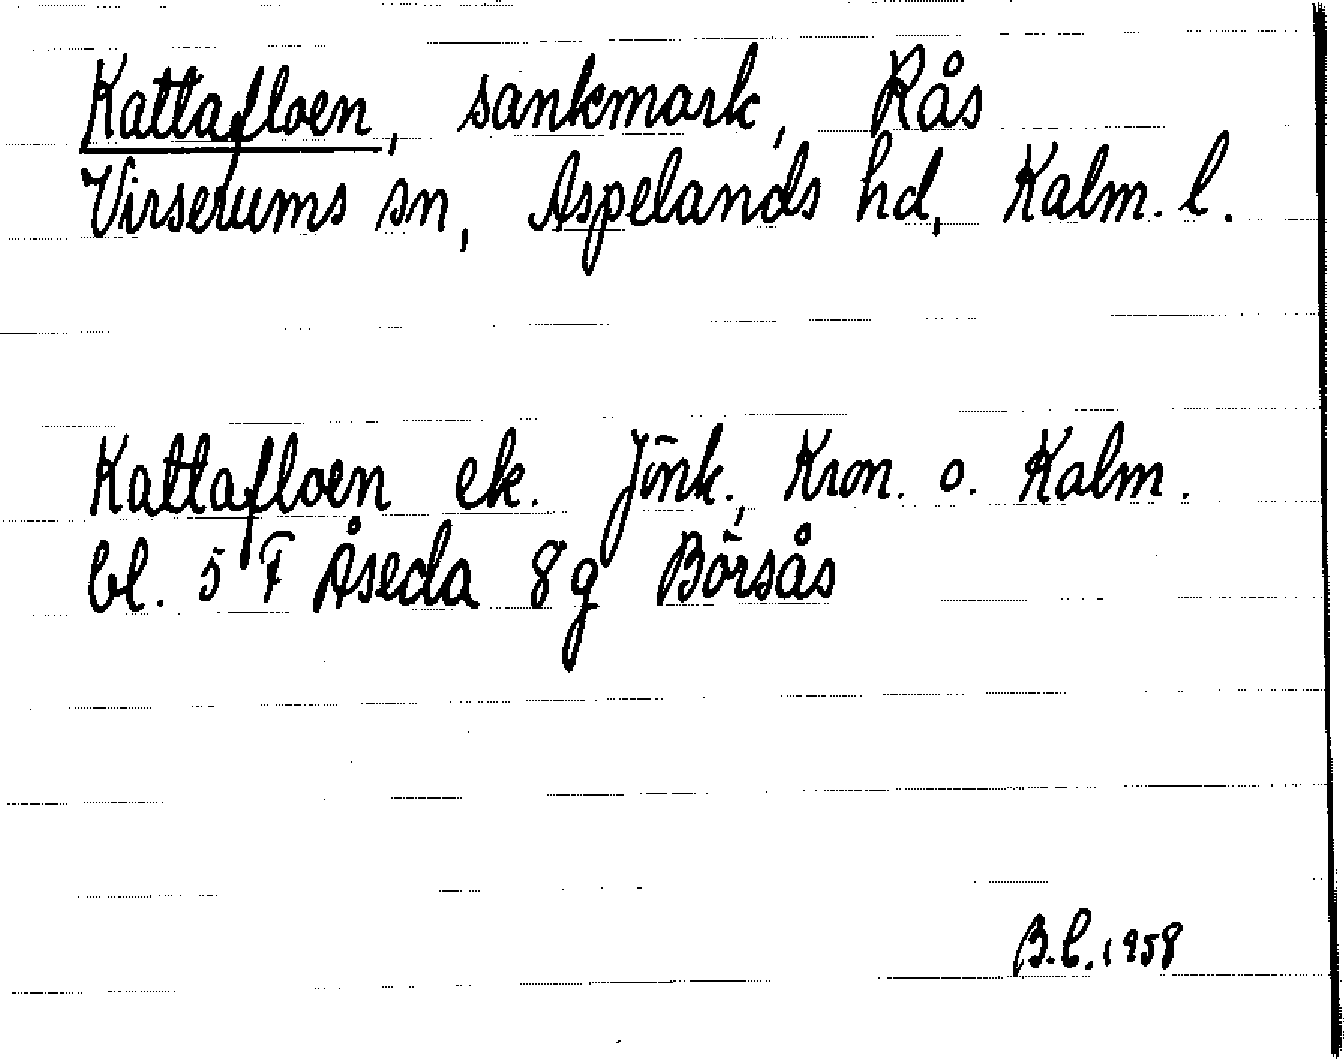 Kattafloen, sankmark, Rås
Virserums sn, Aspelands hd, Kalm. l.
Kattafloen ek. Jönk., Kron. o. Kalm.
bl. 5 F Åseda 8g Börsås
B.L. 1958